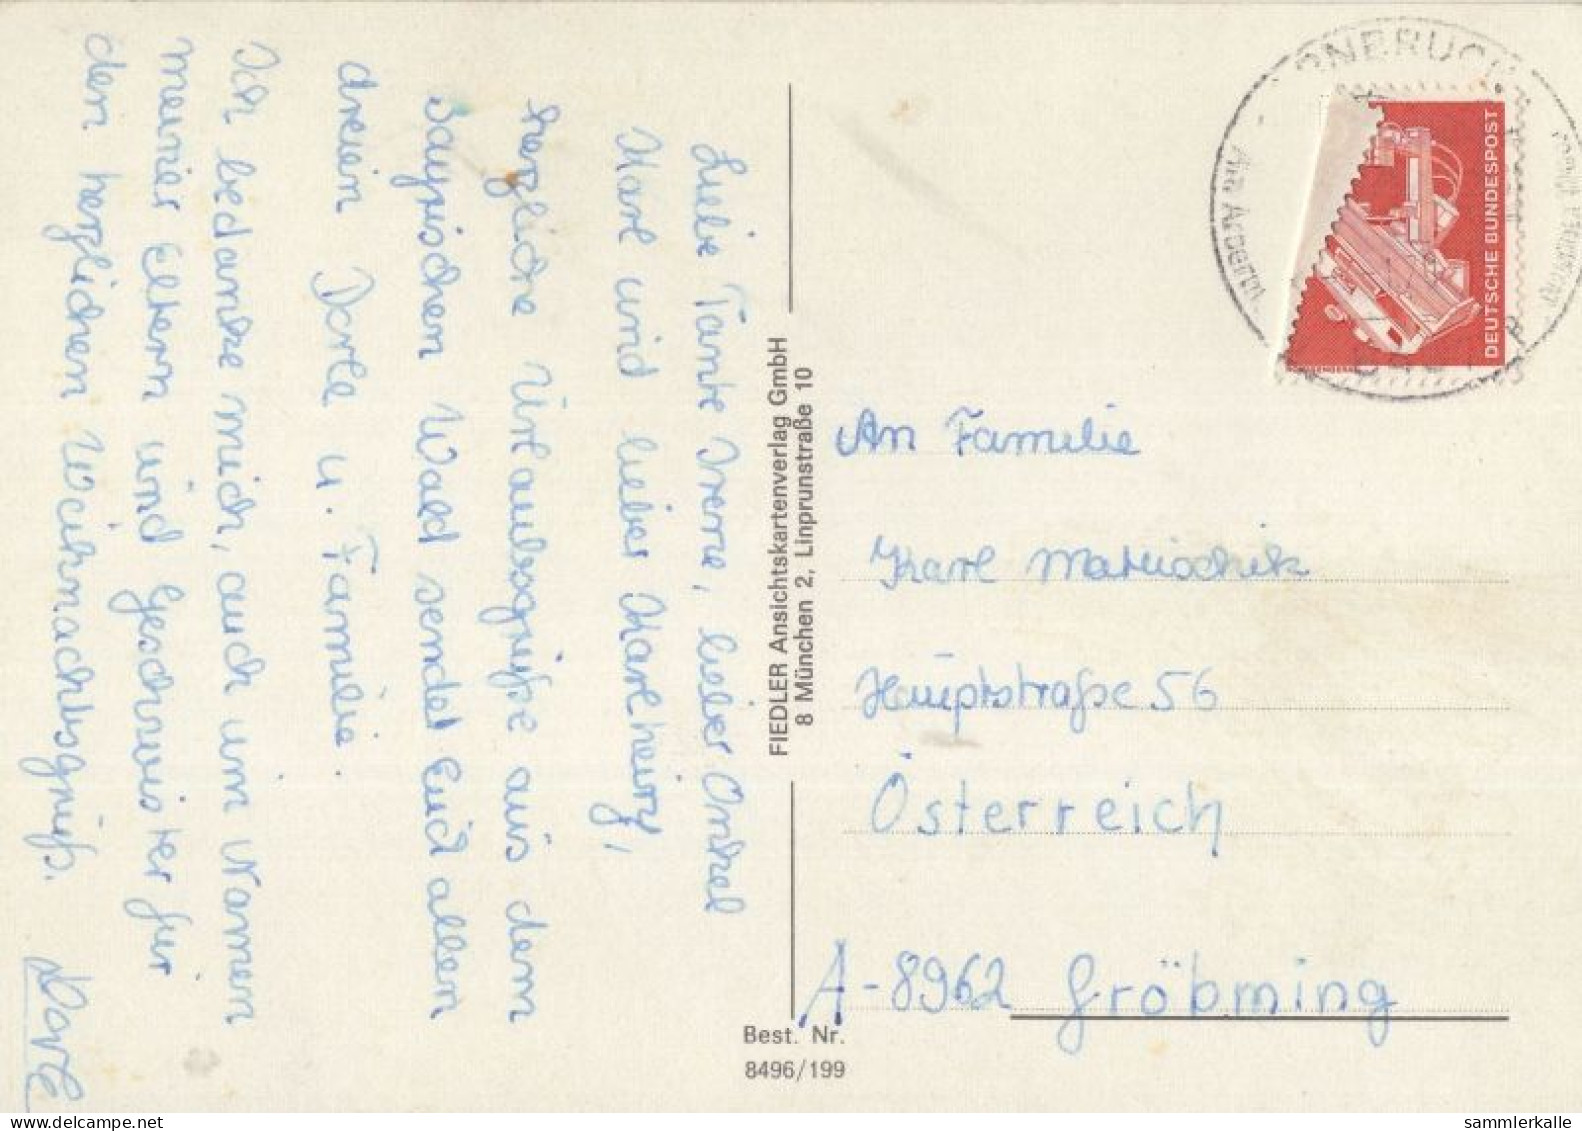 Liebe Tante Irene, lieber Onkel
Karl und lieber Karlheinz,
herzliche Urlaubsgrüße aus dem
Bayrischen Wald sendet Euch allen
dreien Dorle u. Familie.
Ich bedanke mich, auch im Namen
meiner Eltern und Geschwister für
den herzlichen Weihnachtsgruß.
Dorle
FIEDLER Ansichtskartenverlag GmbH
8 München 2, Linprunstraße 10
Best. Nr.
8496/199
DEUTSCHE BUNDESPOST
An Familie
Karl
Hauptstraße 56
Österreich
A-8962 Gröbming
sammlerkalle